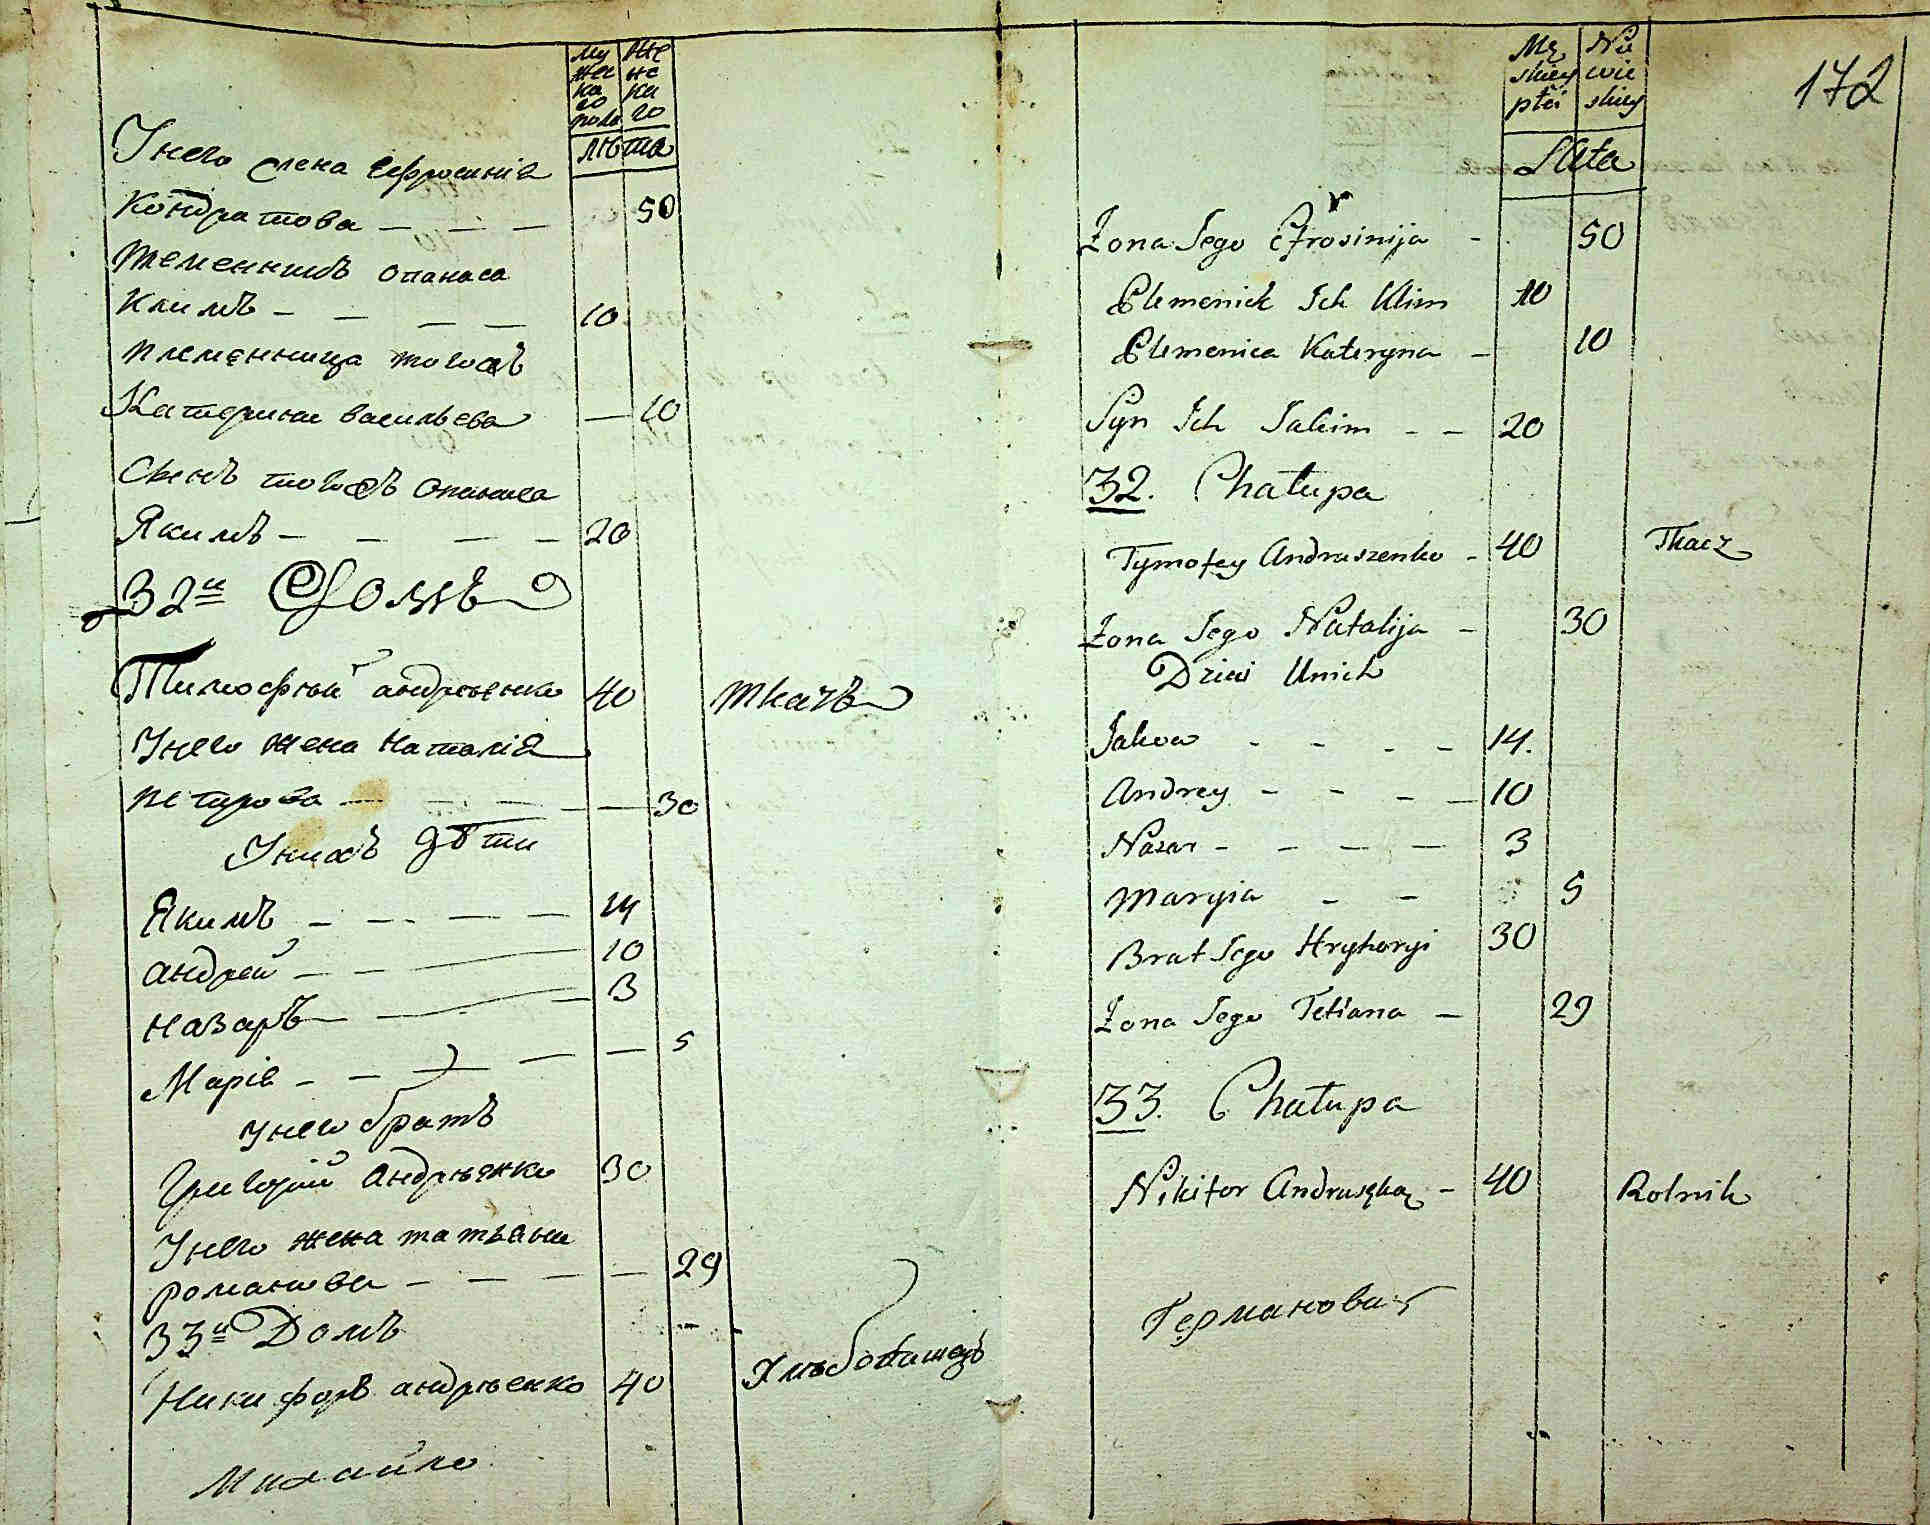 Мужескаго пола
Женскаго
Лѣта
Унего жена Ефросинiя
Кондратова — — — 50
Племенникъ Опанаса
Климъ — — — — 10
Племенница тогожъ
Катерина Васильева — 10
Синъ тогожъ Опанаса
Якимъ — — — — 20
32й Домъ
Тимофѣй Андрѣенко 40 Ткачъ
Унего жена Наталiя
Петрова — — — — — 30
Унихъ дѣти
Якимъ — — — — 14
Андрей — — — 10
Назаръ — — — 3
Марiя — — — — — 5
Унего братъ
Григорiй Андрѣенко 30
Унего жена Татьяна
Романова — — — — — 29
33й Домъ
Никифоръ Андрѣенко 40 Хлѣбопашецъ
Михайло
172
Męskiey płci
Niewieskiey
Lata
Żona Jego Efrosinija - 50
Plemenick Ich Klim 10
Plemenica Kateryna - 10
Syn Ich Jakim - - 20
32. Chałupa
Tymofey Andruszenko - 40 Tkacz
Żona Jego Natalija - 30
Dzieci Unich
Jakow - - - - 14.
Andrey - - - - 10
Nazar - - - - 3
Maryia - - 5
Brat Jego Hryhoryi 30
Żona Jego Tetiana - 29
33. Chałupa
Nikifor - 40 Rolnik
Германова